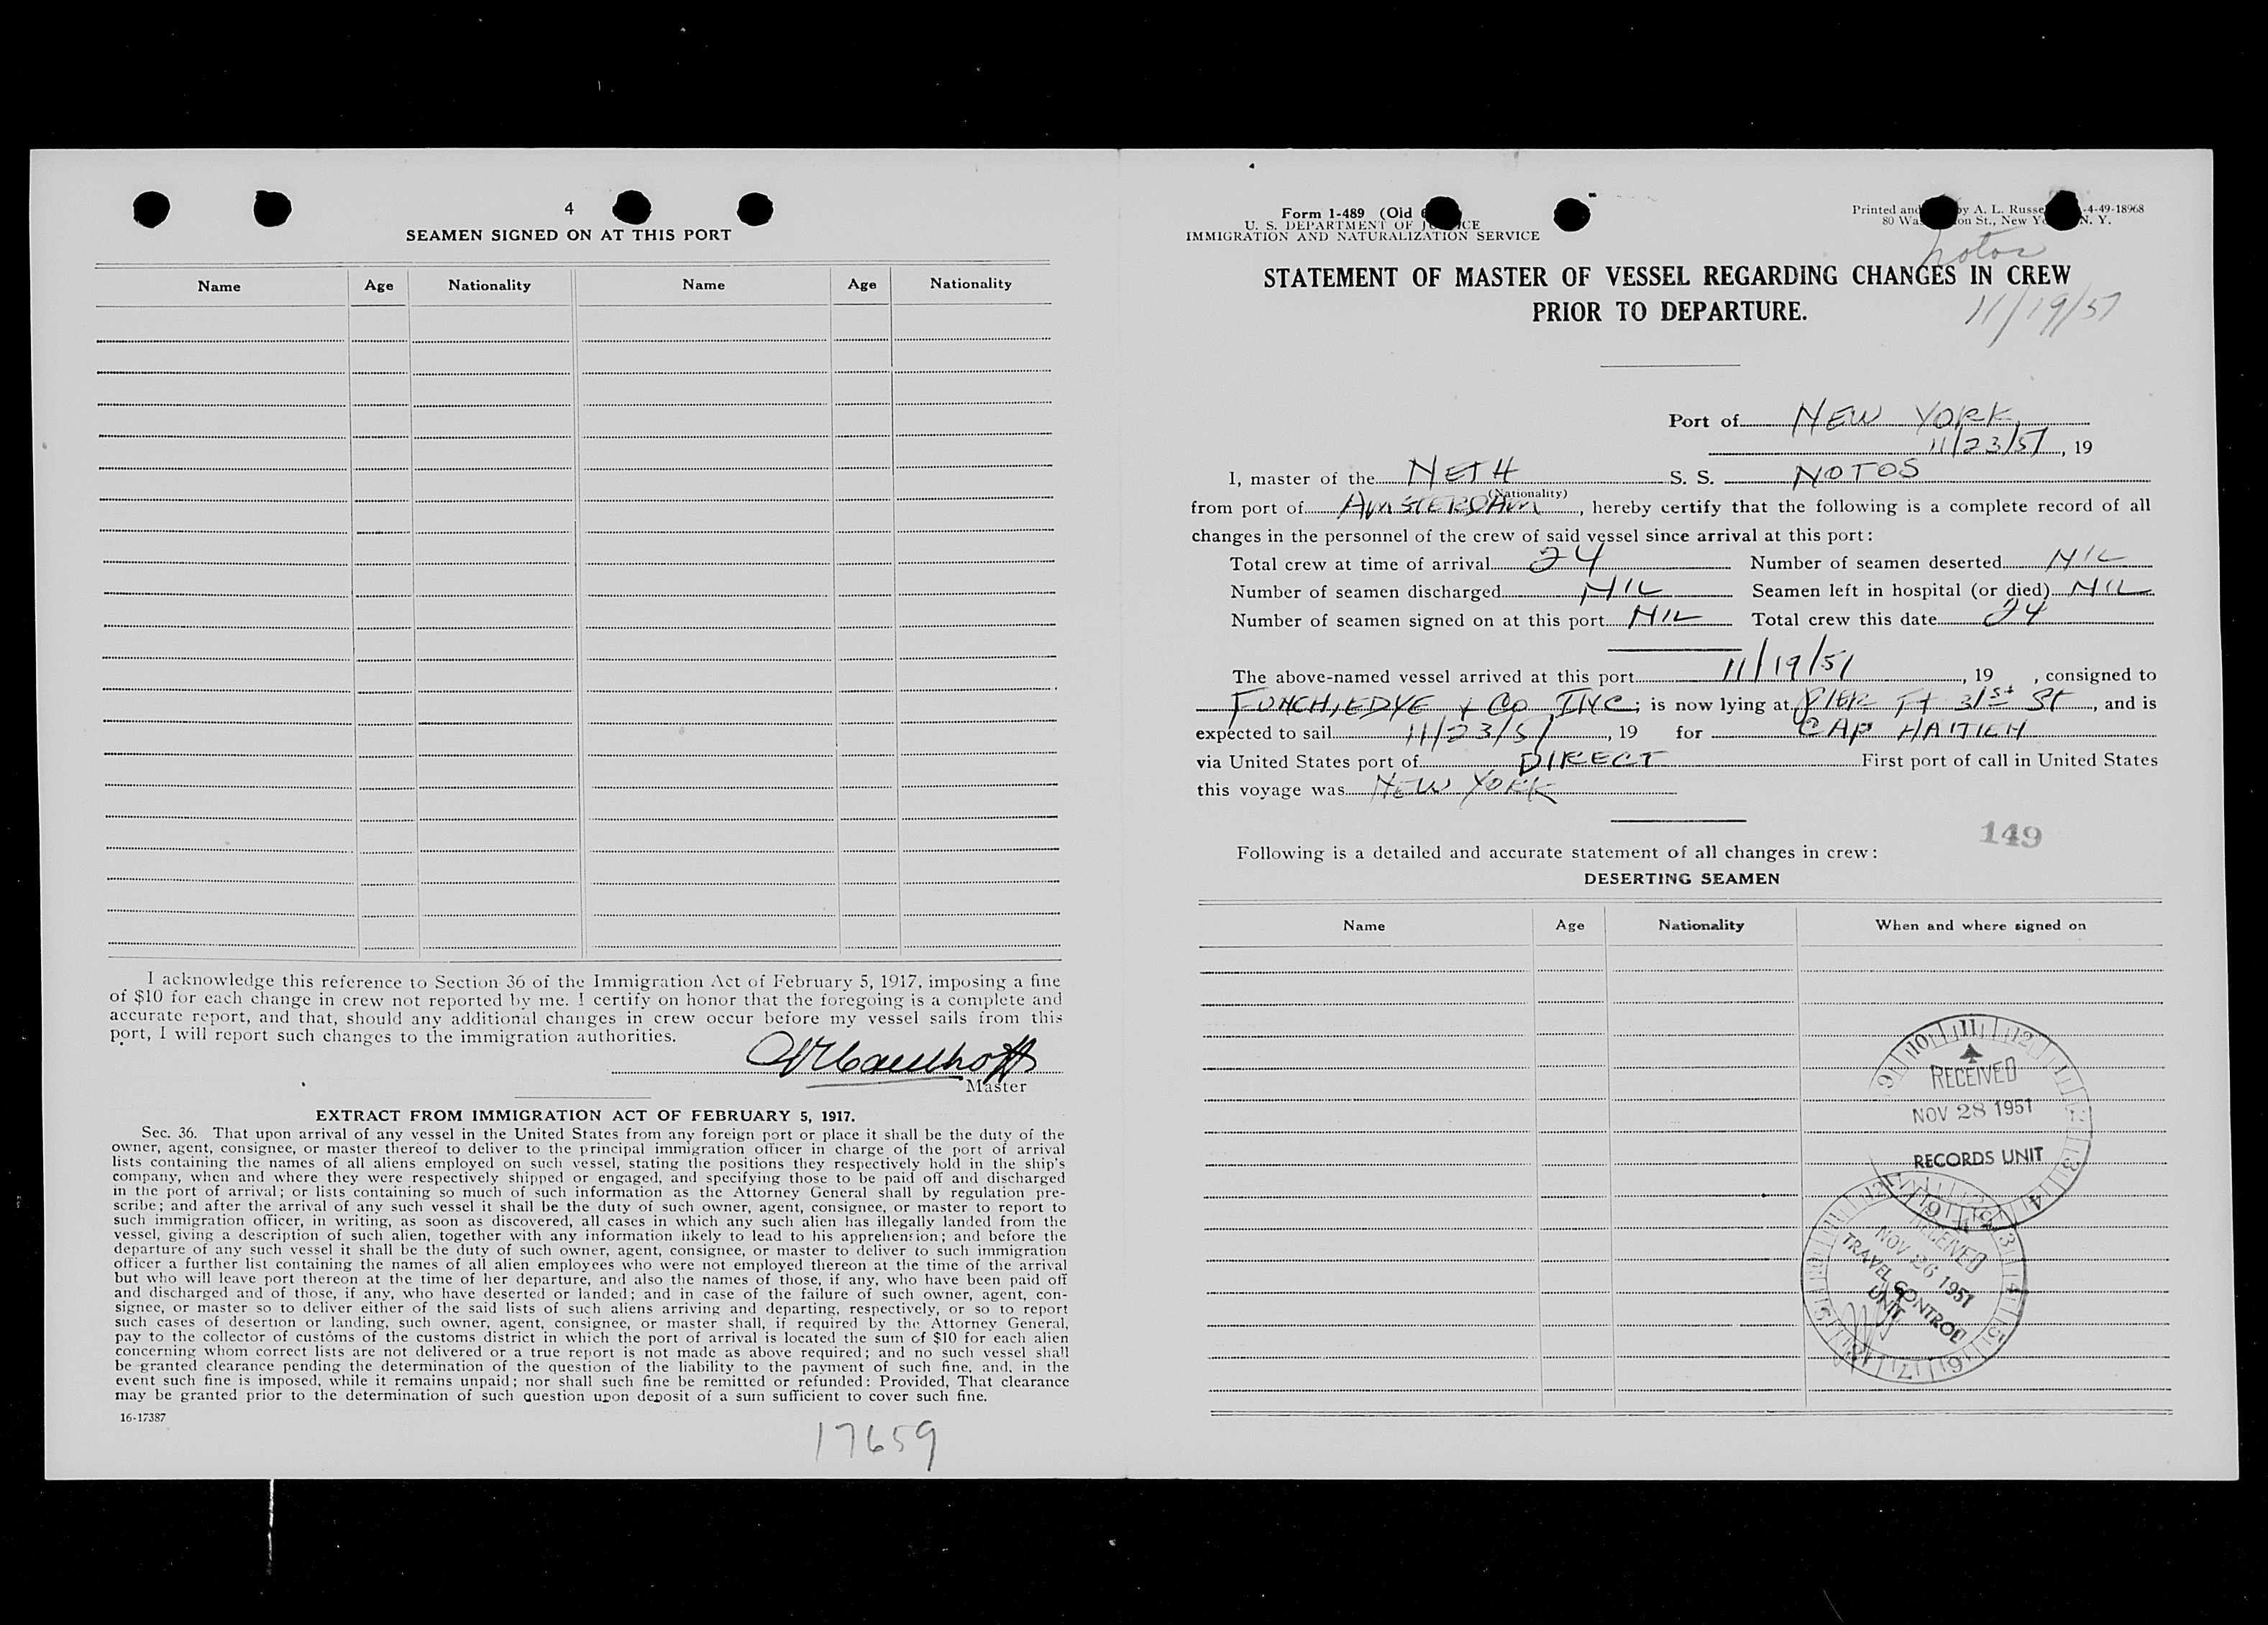 4
SEAMEN SIGNED ON AT THIS PORT
Name Age Nationality Name Age Nationality
I acknowledge this reference to Section 36 of the Immigration Act of February 5, 1917, imposing a fine
of $10 for each change in crew not reported by me. I certify on honor that the foregoing is a complete and
accurate report, and that, should any additional changes in crew occur before my vessel sails from this
port, I will report such changes to the immigration authorities.
Master
EXTRACT FROM IMMIGRATION ACT OF FEBRUARY 5, 1917.
Sec. 36. That upon arrival of any vessel in the United States from any foreign port or place it shall be the duty of the
owner, agent, consignee, or master thereof to deliver to the principal immigration officer in charge of the port of arrival
lists containing the names of all aliens employed on such vessel, stating the positions they respectively hold in the ship's
company, when and where they were respectively shipped or engaged, and specifying those to be paid off and discharged
in the port of arrival; or lists containing so much of such information as the Attorney General shall by regulation pre-
scribe; and after the arrival of any such vessel it shall be the duty of such owner, agent, consignee, or master to report to
such immigration officer, in writing, as soon as discovered, all cases in which any such alien has illegally landed from the
vessel, giving a description of such alien, together with any information likely to lead to his apprehension; and before the
departure of any such vessel it shall be the duty of such owner, agent, consignee, or master to deliver to such immigration
officer a further list containing the names of all alien employees who were not employed thereon at the time of the arrival
but who will leave port thereon at the time of her departure, and also the names of those, if any, who have been paid off
and discharged and of those, if any, who have deserted or landed; and in case of the failure of such owner, agent, con-
signee, or master so to deliver either of the said lists of such aliens arriving and departing, respectively, or so to report
such cases of desertion or landing, such owner, agent, consignee, or master shall, if required by the Attorney General,
pay to the collector of customs of the customs district in which the port of arrival is located the sum of $10 for each alien
concerning whom correct lists are not delivered or a true report is not made as above required; and no such vessel shall
be granted clearance pending the determination of the question of the liability to the payment of such fine, and, in the
event such fine is imposed, while it remains unpaid; nor shall such fine be remitted or refunded: Provided, That clearance
may be granted prior to the determination of such question upon deposit of a sum sufficient to cover such fine.
16-17387
17659
Form I-489 (Old
U. S. DEPARTMENT OF
IMMIGRATION AND NATURALIZATION SERVICE
Printed and by A. L. Russe -4-49-18968
80 Wa on St., New Y N. Y.
notos
STATEMENT OF MASTER OF VESSEL REGARDING CHANGES IN CREW
PRIOR TO DEPARTURE.
11/19/51
Port of NEW YORK
11/23/51, 19
I, master of the NETH S. S. NOTOS
(Nationality)
from port of AMSTERDAM, hereby certify that the following is a complete record of all
changes in the personnel of the crew of said vessel since arrival at this port:
Total crew at time of arrival 24 Number of seamen deserted NIL
Number of seamen discharged NIL Seamen left in hospital (or died) NIL
Number of seamen signed on at this port NIL Total crew this date 24
The above-named vessel arrived at this port 11/19/51, 19 , consigned to
FUNCH, EDYE & CO INC; is now lying at PIER FT 31st ST, and is
expected to sail 11/23/51, 19 for CAP HAITIEN
via United States port of DIRECT First port of call in United States
this voyage was NEW YORK
149
Following is a detailed and accurate statement of all changes in crew:
DESERTING SEAMEN
Name Age Nationality When and where signed on
RECEIVED
NOV 28 1951
RECORDS UNIT
RECEIVED
NOV 26 1951
TRAVEL CONTROL
UNIT